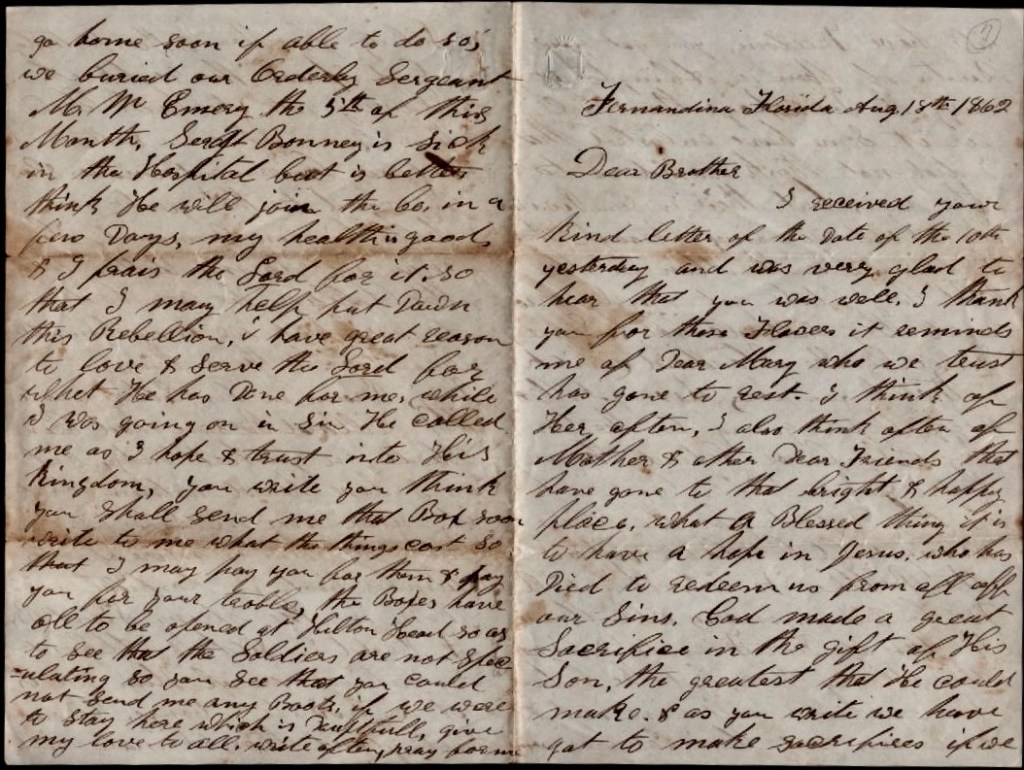 Fernandina Florida Aug 18th 1862
Dear Brother
I received your
kind letter of the Date of the 10th
yesterday and was very glad to
hear that you was well. I thank
you for those Flowers it reminds
me of Dear Mary who we trust
has gone to rest. I think of
Her often, I also think often of
Mother & other Dear Friends that
have gone to that bright & happy
place. what a Blessed thing it is
to have a hope in Jesus. who has
Died to redeem us from all off
our Sins. God made a great
Sacrifice in the gift of His
Son, the greatest that He could
make. & as you write we have
got to make sacrifices if we
go home soon if able to do so,
we buried our Orderly Sergeant
Mr Wm Emery the 5th of this
Month, Sergt Bonney is sick
in the Hospital but is better
think He will join the Co, in a
few Days, my health is good,
& I prais the Lord for it. so
that I may help put Dawn
this Rebellion, I have great reason
to love & serve the Lord for
what He has Done for me, while
I was going on in Sin He called
me as I hope & trust into His
Kingdom, you write you think
you shall send me that Box soon
write to me what the things cost so
that I may pay you for them & pay
you for your troble, the Boxes have
all to be opened at Hilton Head so as
to see that the Soldiers are not spec
=ulating so you see that you could
not send me any Boots, if we were
to stay here which is Doutfull, give
my love to all. write often, pray for me